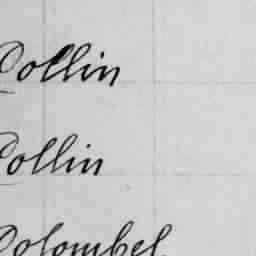 Collin
Collin
Colombel